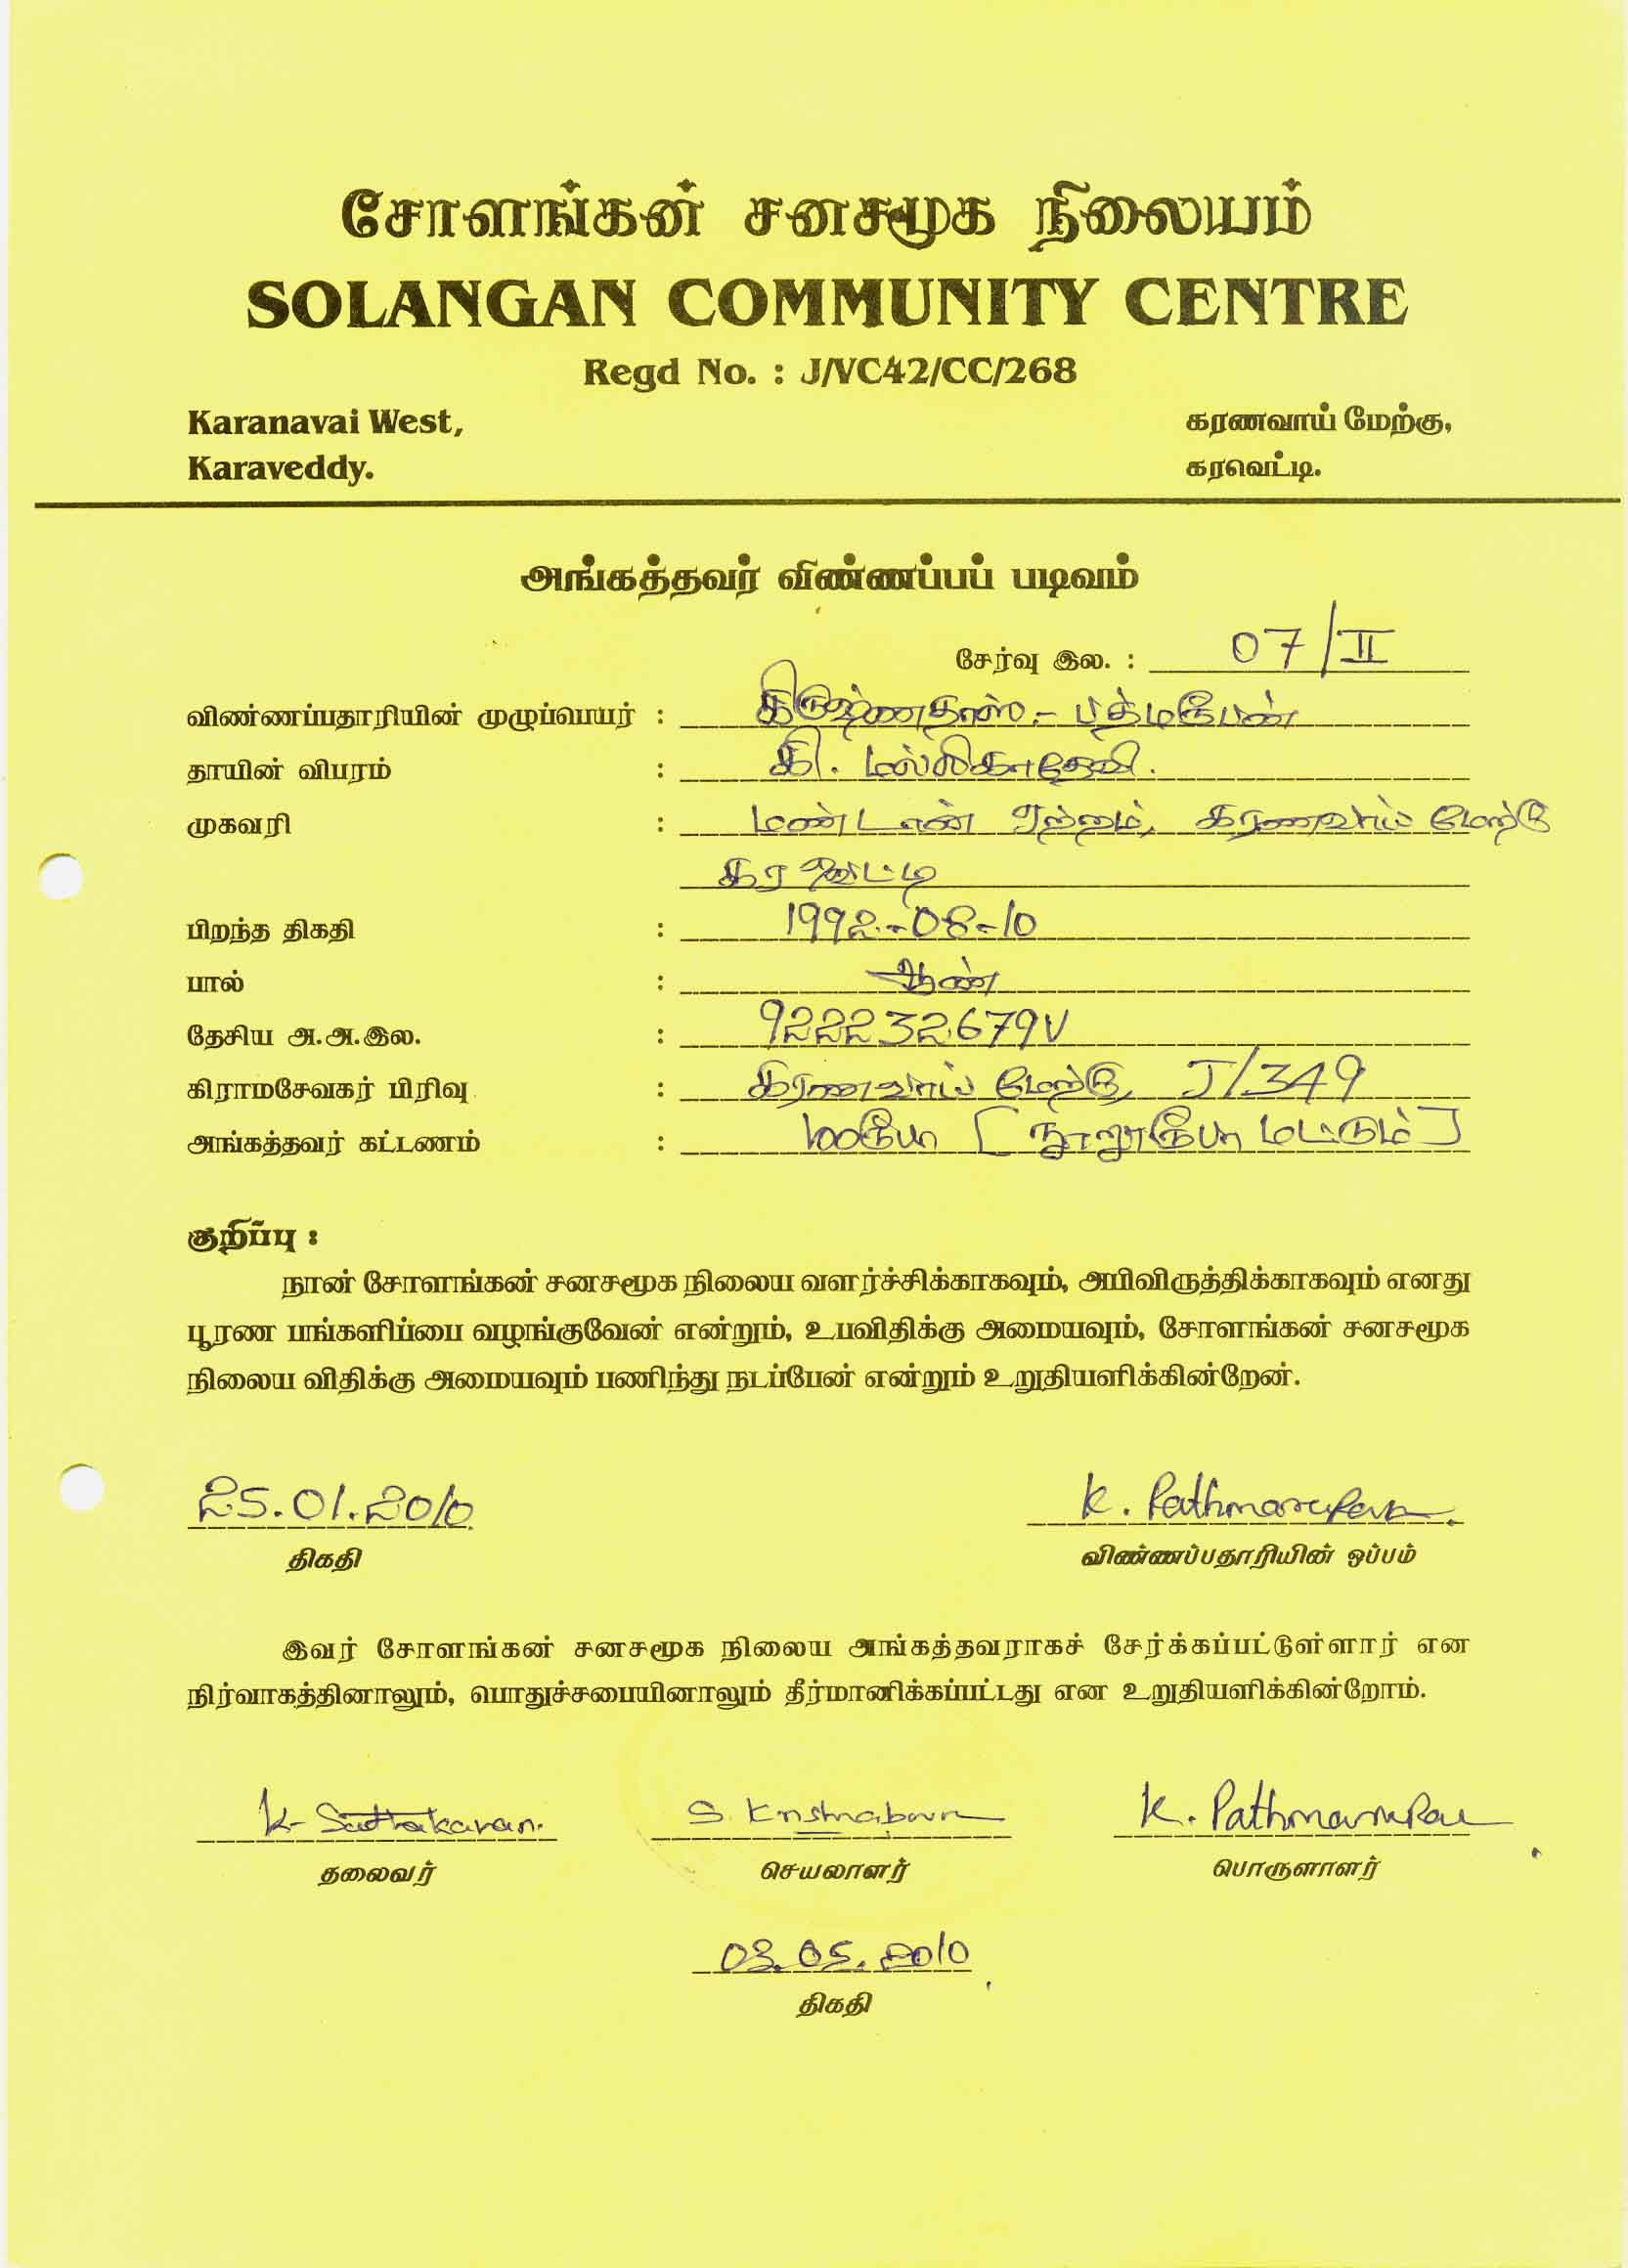 சோளங்கன் சனசமூக நிலையம்
SOLANGAN COMMUNITY CENTRE
Regd No. : J/VC42/CC/268
Karanavai West,
கரணவாய் மேற்கு,
Karaveddy.
கரவெட்டி.
அங்கத்தவர் விண்ணப்பப் படிவம்
சேர்வு இல. : 07/II
விண்ணப்பதாரியின் முழுப்பெயர் : கிருஷ்ணதாஸ் - பத்மரூபன்
தாயின் விபரம் : கி. மல்லிகாதேவி.
முகவரி : மண்டான் ஏற்றம், கரணவாய் மேற்கு
கரவெட்டி
பிறந்த திகதி : 1992-08-10
பால் : ஆண்
தேசிய அ.அ.இல. : 922232679V
கிராமசேவகர் பிரிவு : கரணவாய் மேற்கு, J/349
அங்கத்தவர் கட்டணம் : 100ரூபா [நூறுரூபா மட்டும்]
குறிப்பு :
நான் சோளங்கன் சனசமூக நிலைய வளர்ச்சிக்காகவும், அபிவிருத்திக்காகவும் எனது
பூரண பங்களிப்பை வழங்குவேன் என்றும், உபவிதிக்கு அமையவும், சோளங்கன் சனசமூக
நிலைய விதிக்கு அமையவும் பணிந்து நடப்பேன் என்றும் உறுதியளிக்கின்றேன்.
25.01.2010
K. Pathmarupan
திகதி
விண்ணப்பதாரியின் ஒப்பம்
இவர் சோளங்கன் சனசமூக நிலைய அங்கத்தவராகச் சேர்க்கப்பட்டுள்ளார் என
நிர்வாகத்தினாலும், பொதுச்சபையினாலும் தீர்மானிக்கப்பட்டது என உறுதியளிக்கின்றோம்.
K. Suthakaran. S. Krishnaban K. Pathmarupan
தலைவர் செயலாளர் பொருளாளர்
03.05.2010
திகதி